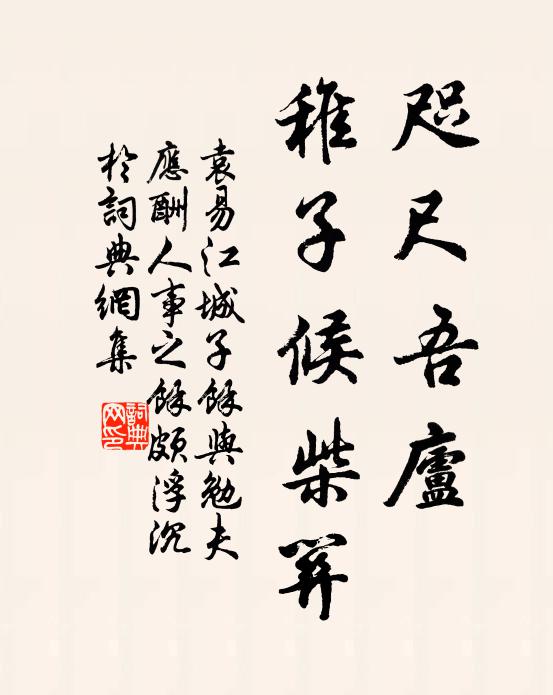 咫尺吾廬
稚子候柴荆
袁易江城子餘與勉夫
應酬人事之餘頗浮沉
於詞典網集
詞典网印